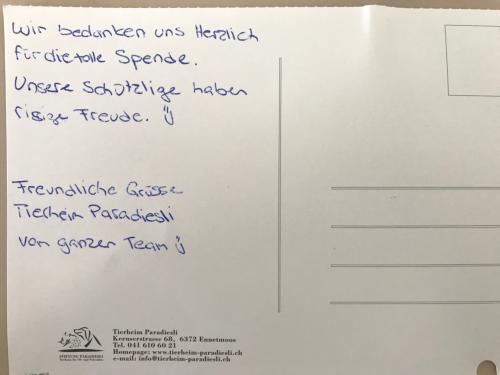 Wir bedanken uns Herzlich
für die tolle Spende.
Unsere Schützlige haben
risige Freude.
Freundliche Grüsse
Tierheim Paradiesli
vom ganzer Team
STIFTUNG PARADIESLI
Tierheim Paradiesli
Kernserstrasse 68, 6372 Ennetmoos
Tel. 041 610 60 21
Homepage: www.tierheim-paradiesli.ch
e-mail: info@tierheim-paradiesli.ch